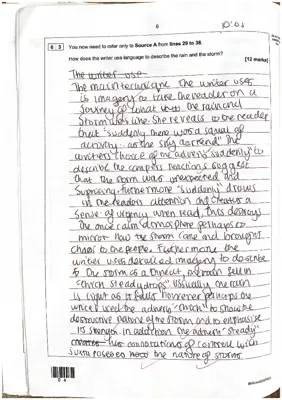 6
10:03
0 3 You now need to refer only to Source A from lines 29 to 38.
How does the writer use language to describe the rain and the storm?
[12 marks]
The writer use
The main technique the writer uses
is imagery to take the reader on a
journey of what the rain and
storm was like. She reveals to the reader
that "suddenly there was a squal of
activity as the sky darkend" The
writers choice of the adverb "suddenly" to
describe the campers reactions suggest
that the storm was unexpected and
suprising. furthermore "suddenly" draws
in the readers attention and creates a
sense of urgency when read, this destroys
the once calm atmosphere perhaps to
mirror how the storm came and brought
chaos to the people. Furthermore the
writer uses detailed imagery to describe
the storm as a threat, as rain fell in
"thick steady drops" Usually the rain
is light as it falls however perhaps the
writer used the adverb "thick" to show the
destructive nature of the storm and to emphasise
its strength. in addition the adverb "steady"
has connotations of control which
the nature of storms
0 6